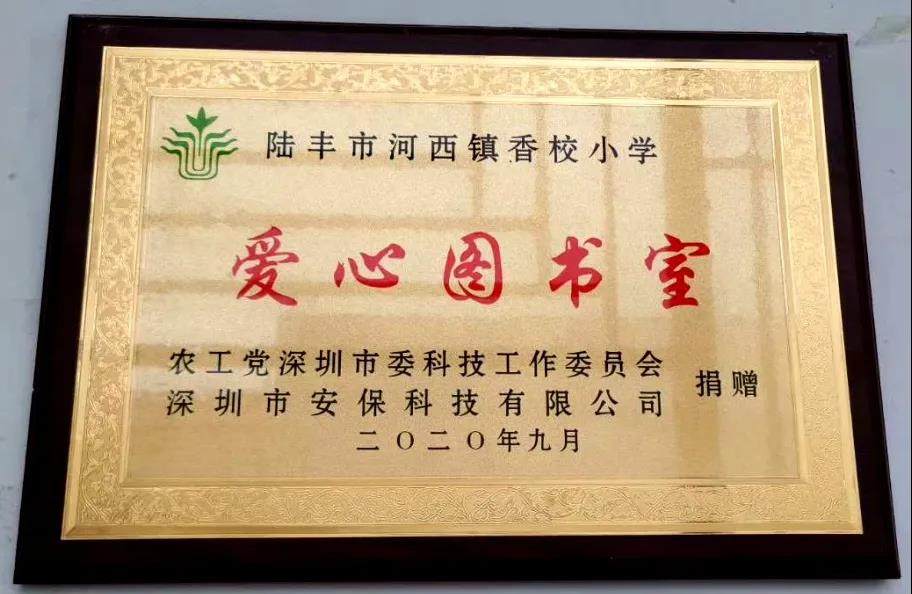 陆丰市河西镇香校小学
爱心图书室
农工党深圳市委科技工作委员会
深圳市安保科技有限公司
捐赠
二〇二〇年九月